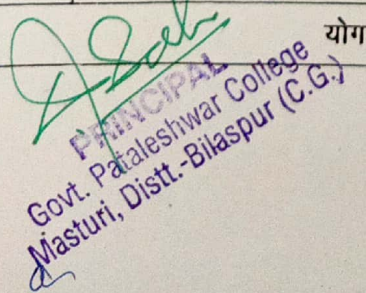 योग
PRINCIPAL
Govt. Pataleshwar College
Masturi, Distt.-Bilaspur (C.G.)